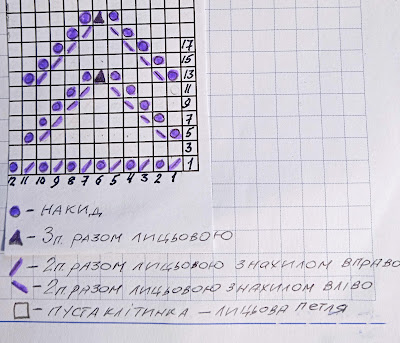 17
15
13
11
9
7
5
3
1
12 11 10 9 8 7 6 5 4 3 2 1
- НАКИД
- 3п. РАЗОМ ЛИЦЬОВОЮ
- 2п. РАЗОМ ЛИЦЬОВОЮ ЗНАХИЛОМ ВПРАВО
- 2п. РАЗОМ ЛИЦЬОВОЮ ЗНАХИЛОМ ВЛІВО
- ПУСТА КЛІТИНКА - ЛИЦЬОВА ПЕТЛЯ